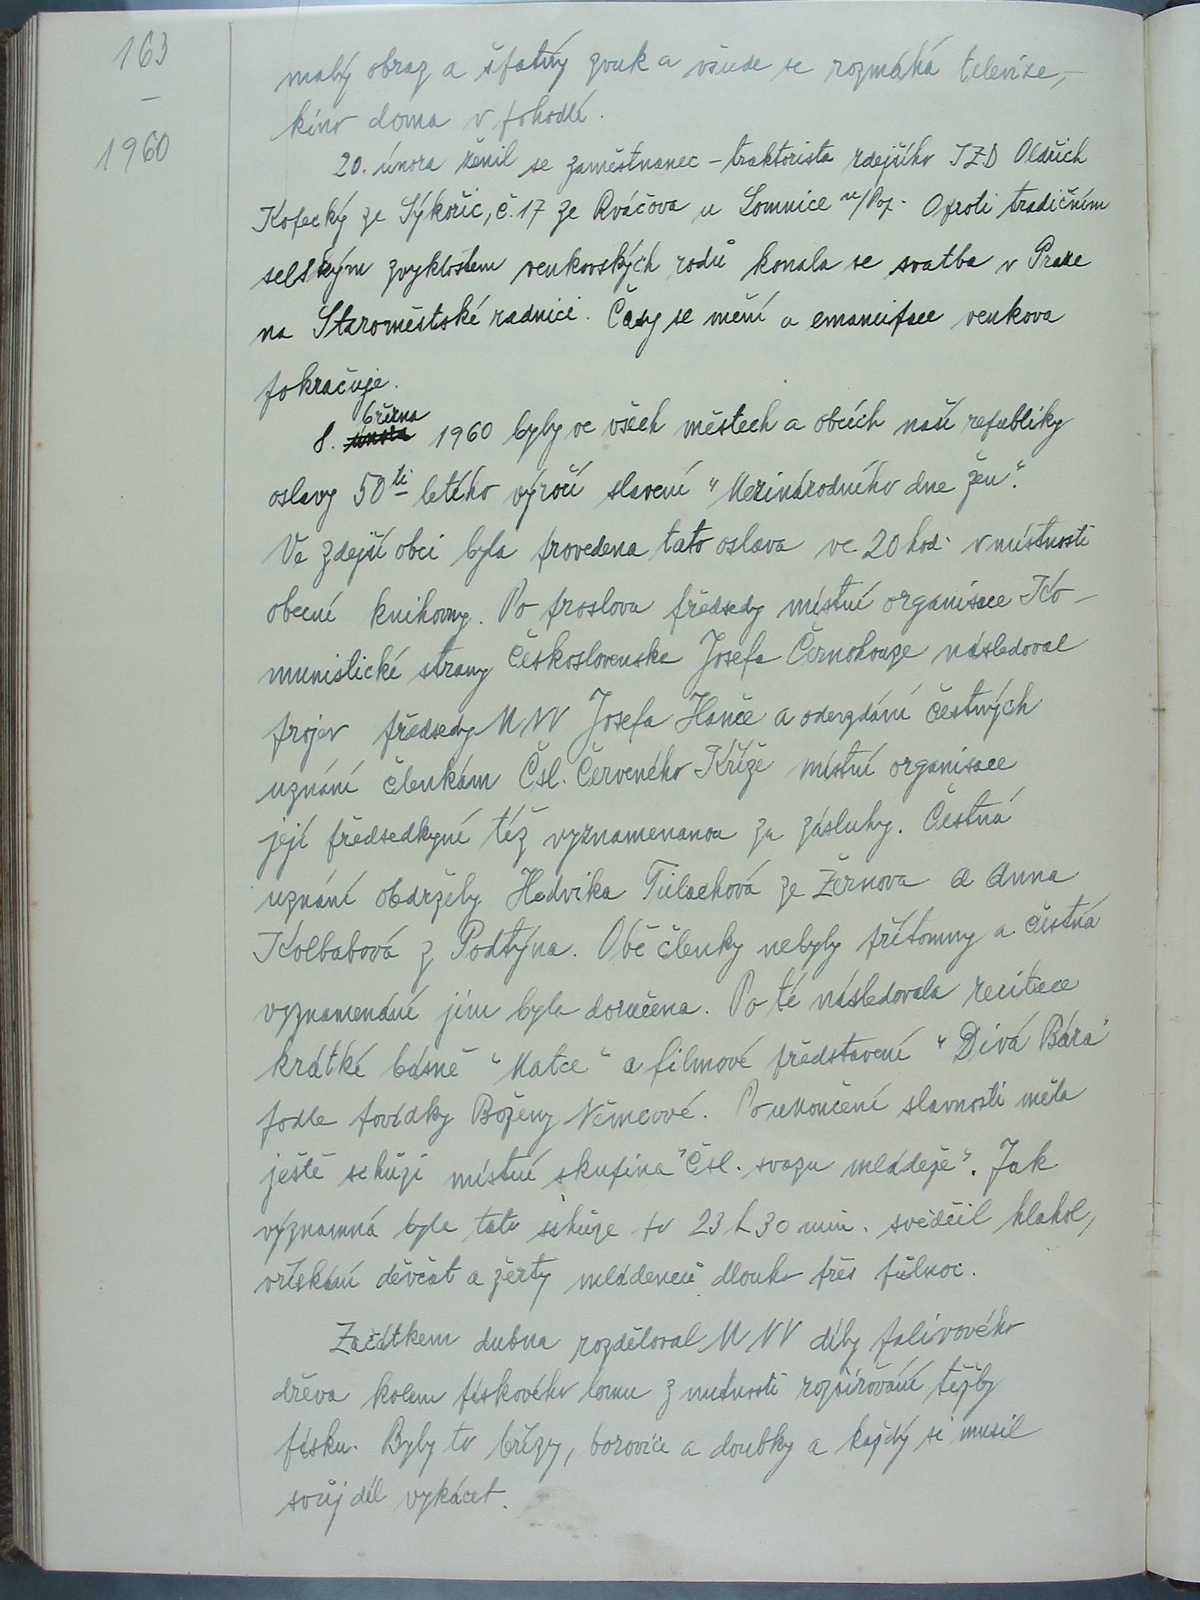 163
—
1960
malý obraz a špatný zvuk a všude se rozmáhá televize, –
kino doma v pohodlí.
20. února ženil se zaměstnanec – traktorista zdejšího JZD Oldřich
Kopecký ze Sýkořic, č. 17 ze Rváčova u Lomnice n/Pop. Oproti tradičním
selským zvyklostem venkovských rodů konala se svatba v Praze
na Staroměstské radnici. Časy se mění a emancipace venkova
pokračuje.
8. března 1960 byly ve všech městech a obcích naší republiky
oslavy 50ti letého výročí slavení "Mezinárodního dne žen".
Ve zdejší obci byla provedena tato oslava ve 20 hod. v místnosti
obecní knihovny. Po proslovu předsedy místní organisace Ko–
munistické strany Československa Josefa Černohouze následoval
projev předsedy MNV Josefa Hanče a odevzdání čestných
uznání členkám Čsl. Červeného Kříže místní organisace
její předsedkyní též vyznamenanou za zásluhy. Čestná
uznání obdržely Hedvika Tulachová ze Žernova a Anna
Kolbabová z Podtýna. Obě členky nebyly přítomny a čestná
vyznamenání jim byla doručena. Po té následovala recitace
krátké básně "Matce" a filmové představení "Divá Bára"
podle povídky Boženy Němcové. Po ukončení slavnosti měla
ještě schůzi místní skupina "Čsl. svazu mládeže". Jak
významná byla tato schůze to 23 h 30 min. svědčil hlahol,
vřískání děvčat a žerty mládenců dlouho přes půlnoc.
Začátkem dubna rozděloval MNV díly palivového
dřeva kolem pískového lomu z nutnosti rozšiřování těžby
písku. Byly to břízy, borovice a doubky a každý si musil
svůj díl vykácet.